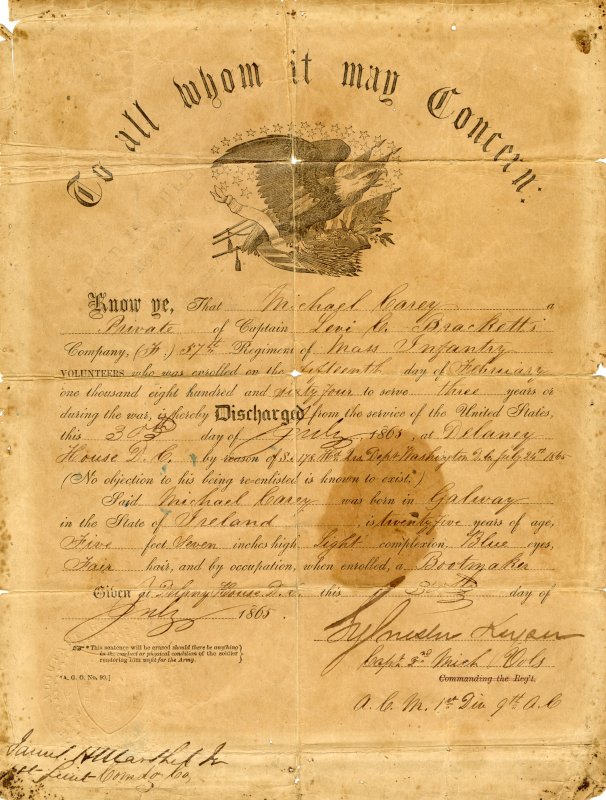 To all whom it may Concern:
Know ye, That Michael Carey a
Private of Captain Levi C. Brackett's
Company, (F.) 57th Regiment of Mass Infantry
VOLUNTEERS who was enrolled on the fifteenth day of February
one thousand eight hundred and sixty four to serve three years or
during the war, is hereby Discharged from the service of the United States,
this 30th day of July, 1865, at Delaney
House D.C. by reason of Hd Qrs Dept Washington D.C. July 26th 1865
(No objection to his being re-enlisted is known to exist.)
Said Michael Carey was born in Galway
in the State of Ireland, is twenty five years of age,
Five feet Seven inches high, Light complexion, Blue eyes,
Fair hair, and by occupation, when enrolled, a Bootmaker
Given at Delany House D.C. this day of
July 1865.
This sentence will be erased should there be anything
in the conduct or physical condition of the soldier
rendering him unfit for the Army.
[A. G. O. No. 99.]
Capt 2nd Mich Vols
Commanding the Reg't.
A. C. M. 1st Div 9th A.C
James H Marshall Jr
1st Lieut Comdg Co,